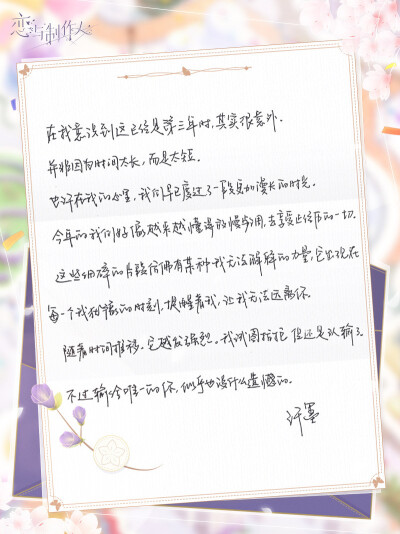 恋与制作人
在我意识到这已经是第三年时,其实很意外.
并非因为时间太长,而是太短.
也许在我的心里,我们早已度过了一段更加漫长的时光.
今年的我们好像越来越懂得放慢步调,去享受止俗后的一切.
这些细碎的片段仿佛有某种我无法解释的力量,它出现在
每一个我犹豫的时刻,提醒着我,让我无法远离你.
随着时间推移,它越发强烈.我试图抗拒,但还是认输了.
不过输给唯一的你,似乎也没什么遗憾的.
许墨